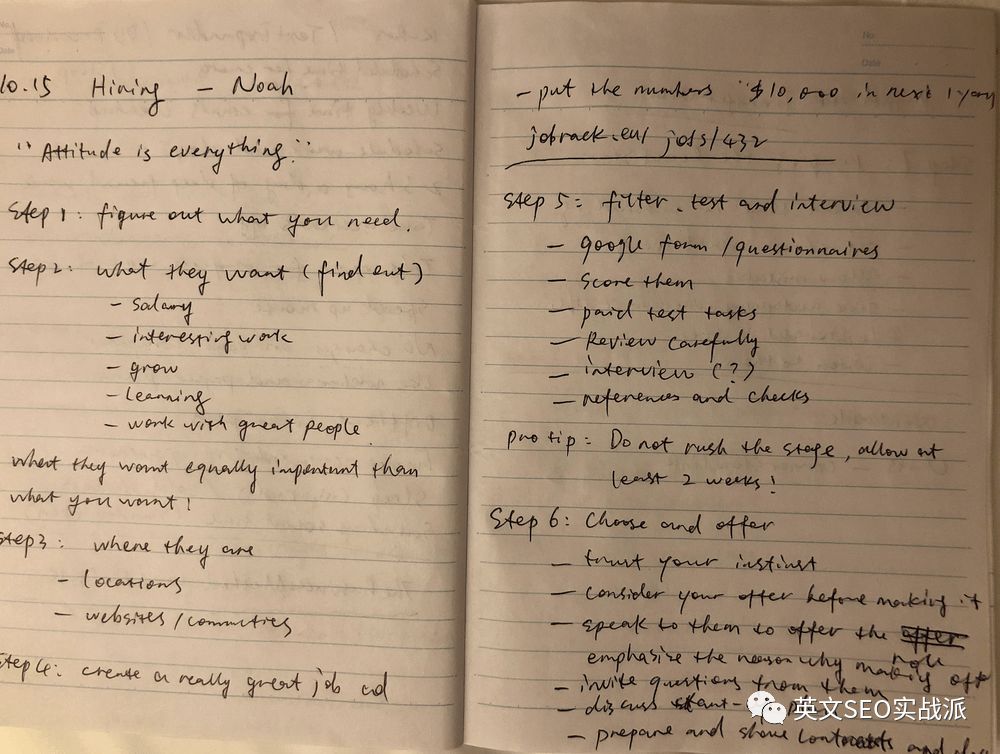 10.15 Hiring - Noah
"Attitude is everything."
Step 1: figure out what you need.
Step 2: what they want (find out)
- salary
- interesting work
- grow
- learning
- work with great people
what they want equally important than
what you want!
Step 3: where they are
- locations
- websites/commuties
Step 4: create a really great job ad
- put the numbers "$10,000 in next 1 year
jobrack.eu/jobs/432
Step 5: filter, test and interview
- google form/questionnaires
- score them
- paid test tasks
- Review carefully
- interview (?)
- references and checks
pro tip: Do not rush the stage, allow at
least 2 weeks!
Step 6: Choose and offer
- trust your instinst
- consider your offer before making it
- speak to them to offer the offer role
emphasize the reason why making off
- invite questions from them
- discuss start-
- prepare and share contracts and
英文SEO实战派
No
Date